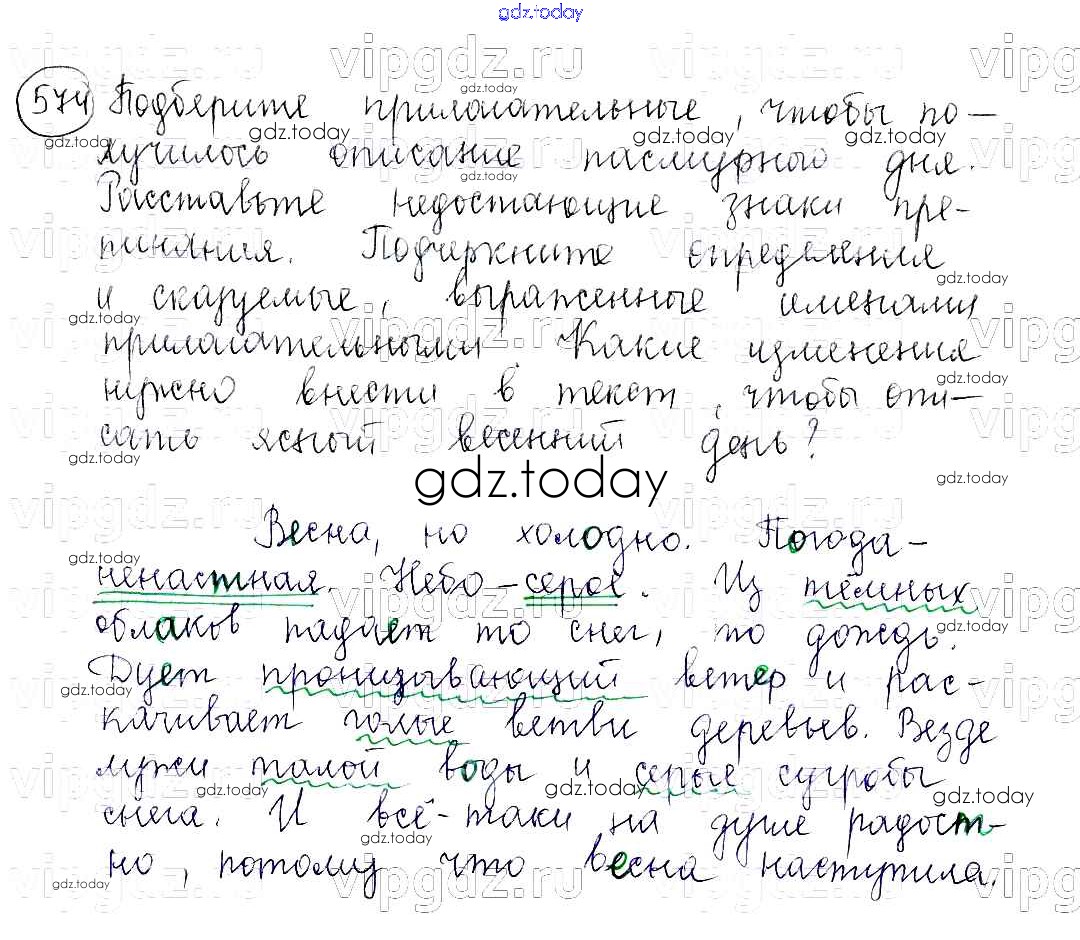 gdz.today
574 Подберите прилагательные, чтобы по-
лучилось описание пасмурного дня.
Расставьте недостающие знаки пре-
пинания. Подчеркните определения
и сказуемые, выраженные именами
прилагательными. Какие изменения
нужно внести в текст, чтобы опи-
сать ясный весенний день?
gdz.today
Весна, но холодно. Погода-
ненастная. Небо-серое. Из тёмных
облаков падает то снег, то дождь.
Дует пронизывающий ветер и рас-
качивает голые ветви деревьев. Везде
лужи талой воды и серые сугробы
снега. И всё-таки на душе радост-
но, потому что весна наступила.